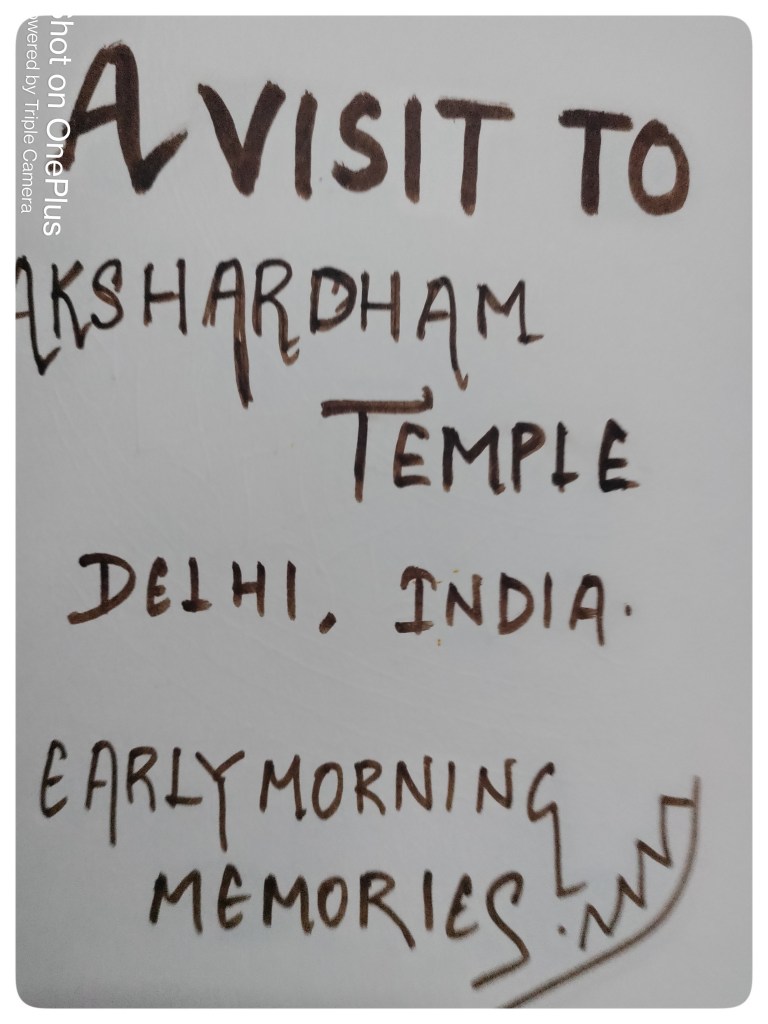 Shot on OnePlus
Powered by Triple Camera
A VISIT TO
AKSHARDHAM
TEMPLE
DELHI, INDIA.
EARLY MORNING
MEMORIES.